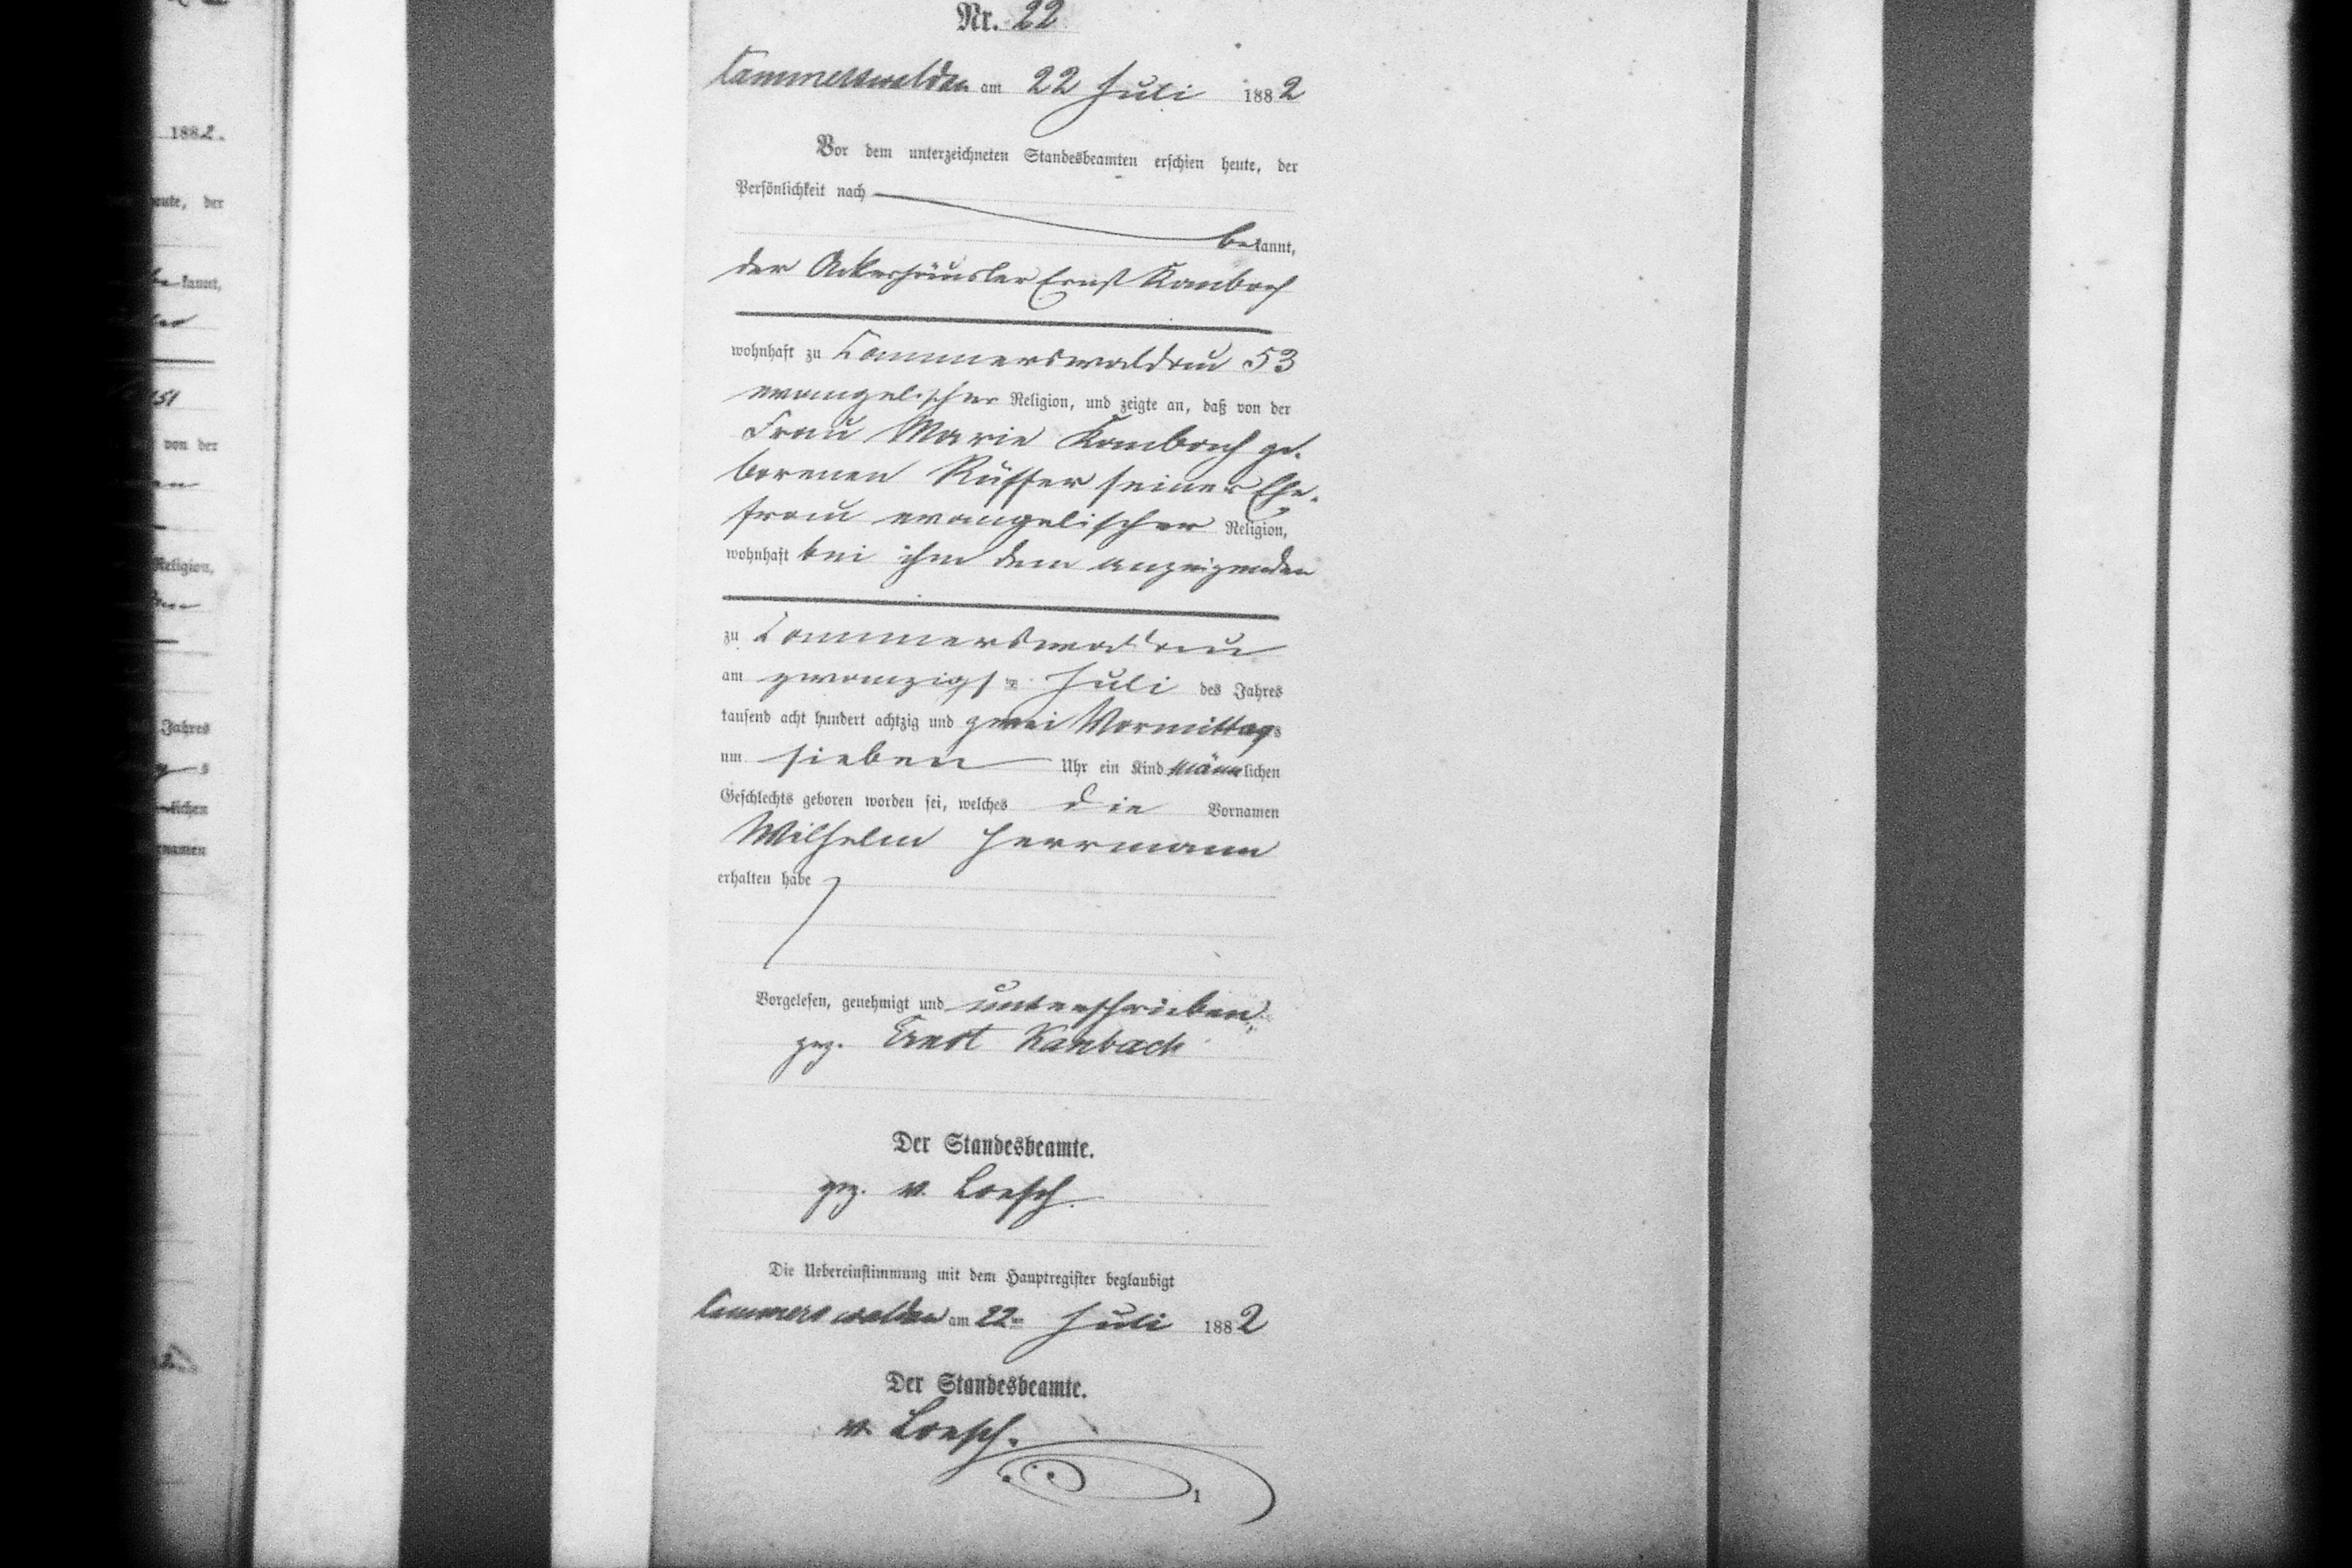 Nr. 22
Cammerswaldau am 22 Juli 1882
Vor dem unterzeichneten Standesbeamten erschien heute, der
Persönlichkeit nach
bekannt,
der Ackerhäusler Ernst Kambach
wohnhaft zu Cammerswaldau 53
evangelischer Religion, und zeigte an, daß von der
Frau Marie Kambach ge.
borenen Rüffer seiner Ehe.
frau evangelischer Religion,
wohnhaft bei ihm dem anzeigenden
zu Cammerswaldau
am zwanzigsten Juli des Jahres
tausend acht hundert achtzig und zwei Vormittags
um sieben Uhr ein Kind männlichen
Geschlechts geboren worden sei, welches die Vornamen
Wilhelm Herrmann
erhalten habe
Vorgelesen, genehmigt und unterschrieben
gez. Ernst Kanbach
Der Standesbeamte.
gez. v. Loesch.
Die Uebereinstimmung mit dem Hauptregister beglaubigt
Cammerswaldau am 22ten Juli 1882
Der Standesbeamte.
v. Loesch.
1
1882.
heute, der
bekannt,
151
von der
Religion,
Jahres
s
lichen
Vornamen